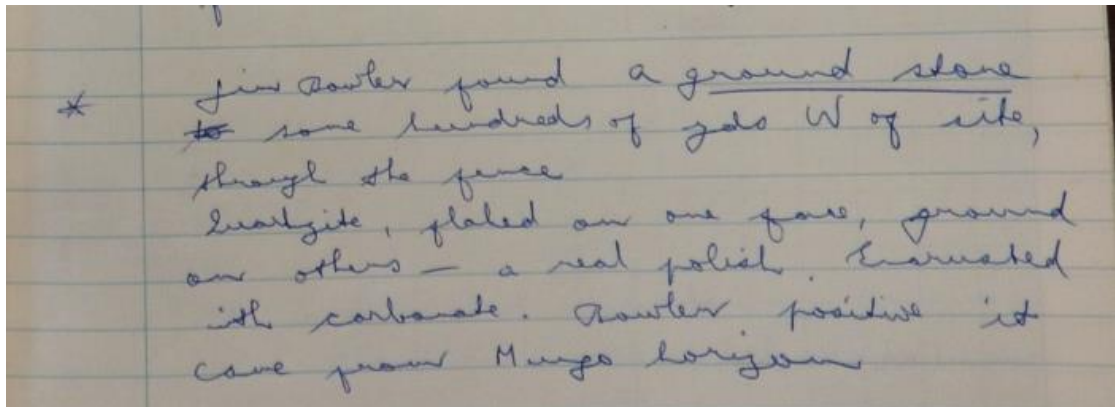 *
Jim Bowler found a ground stone
to some hundreds of yds W of site,
through the fence
Quartzite, flaked on one face, ground
on others — a real polish. Encrusted
ith carbonate. Bowler positive it
came from Mungo horizon